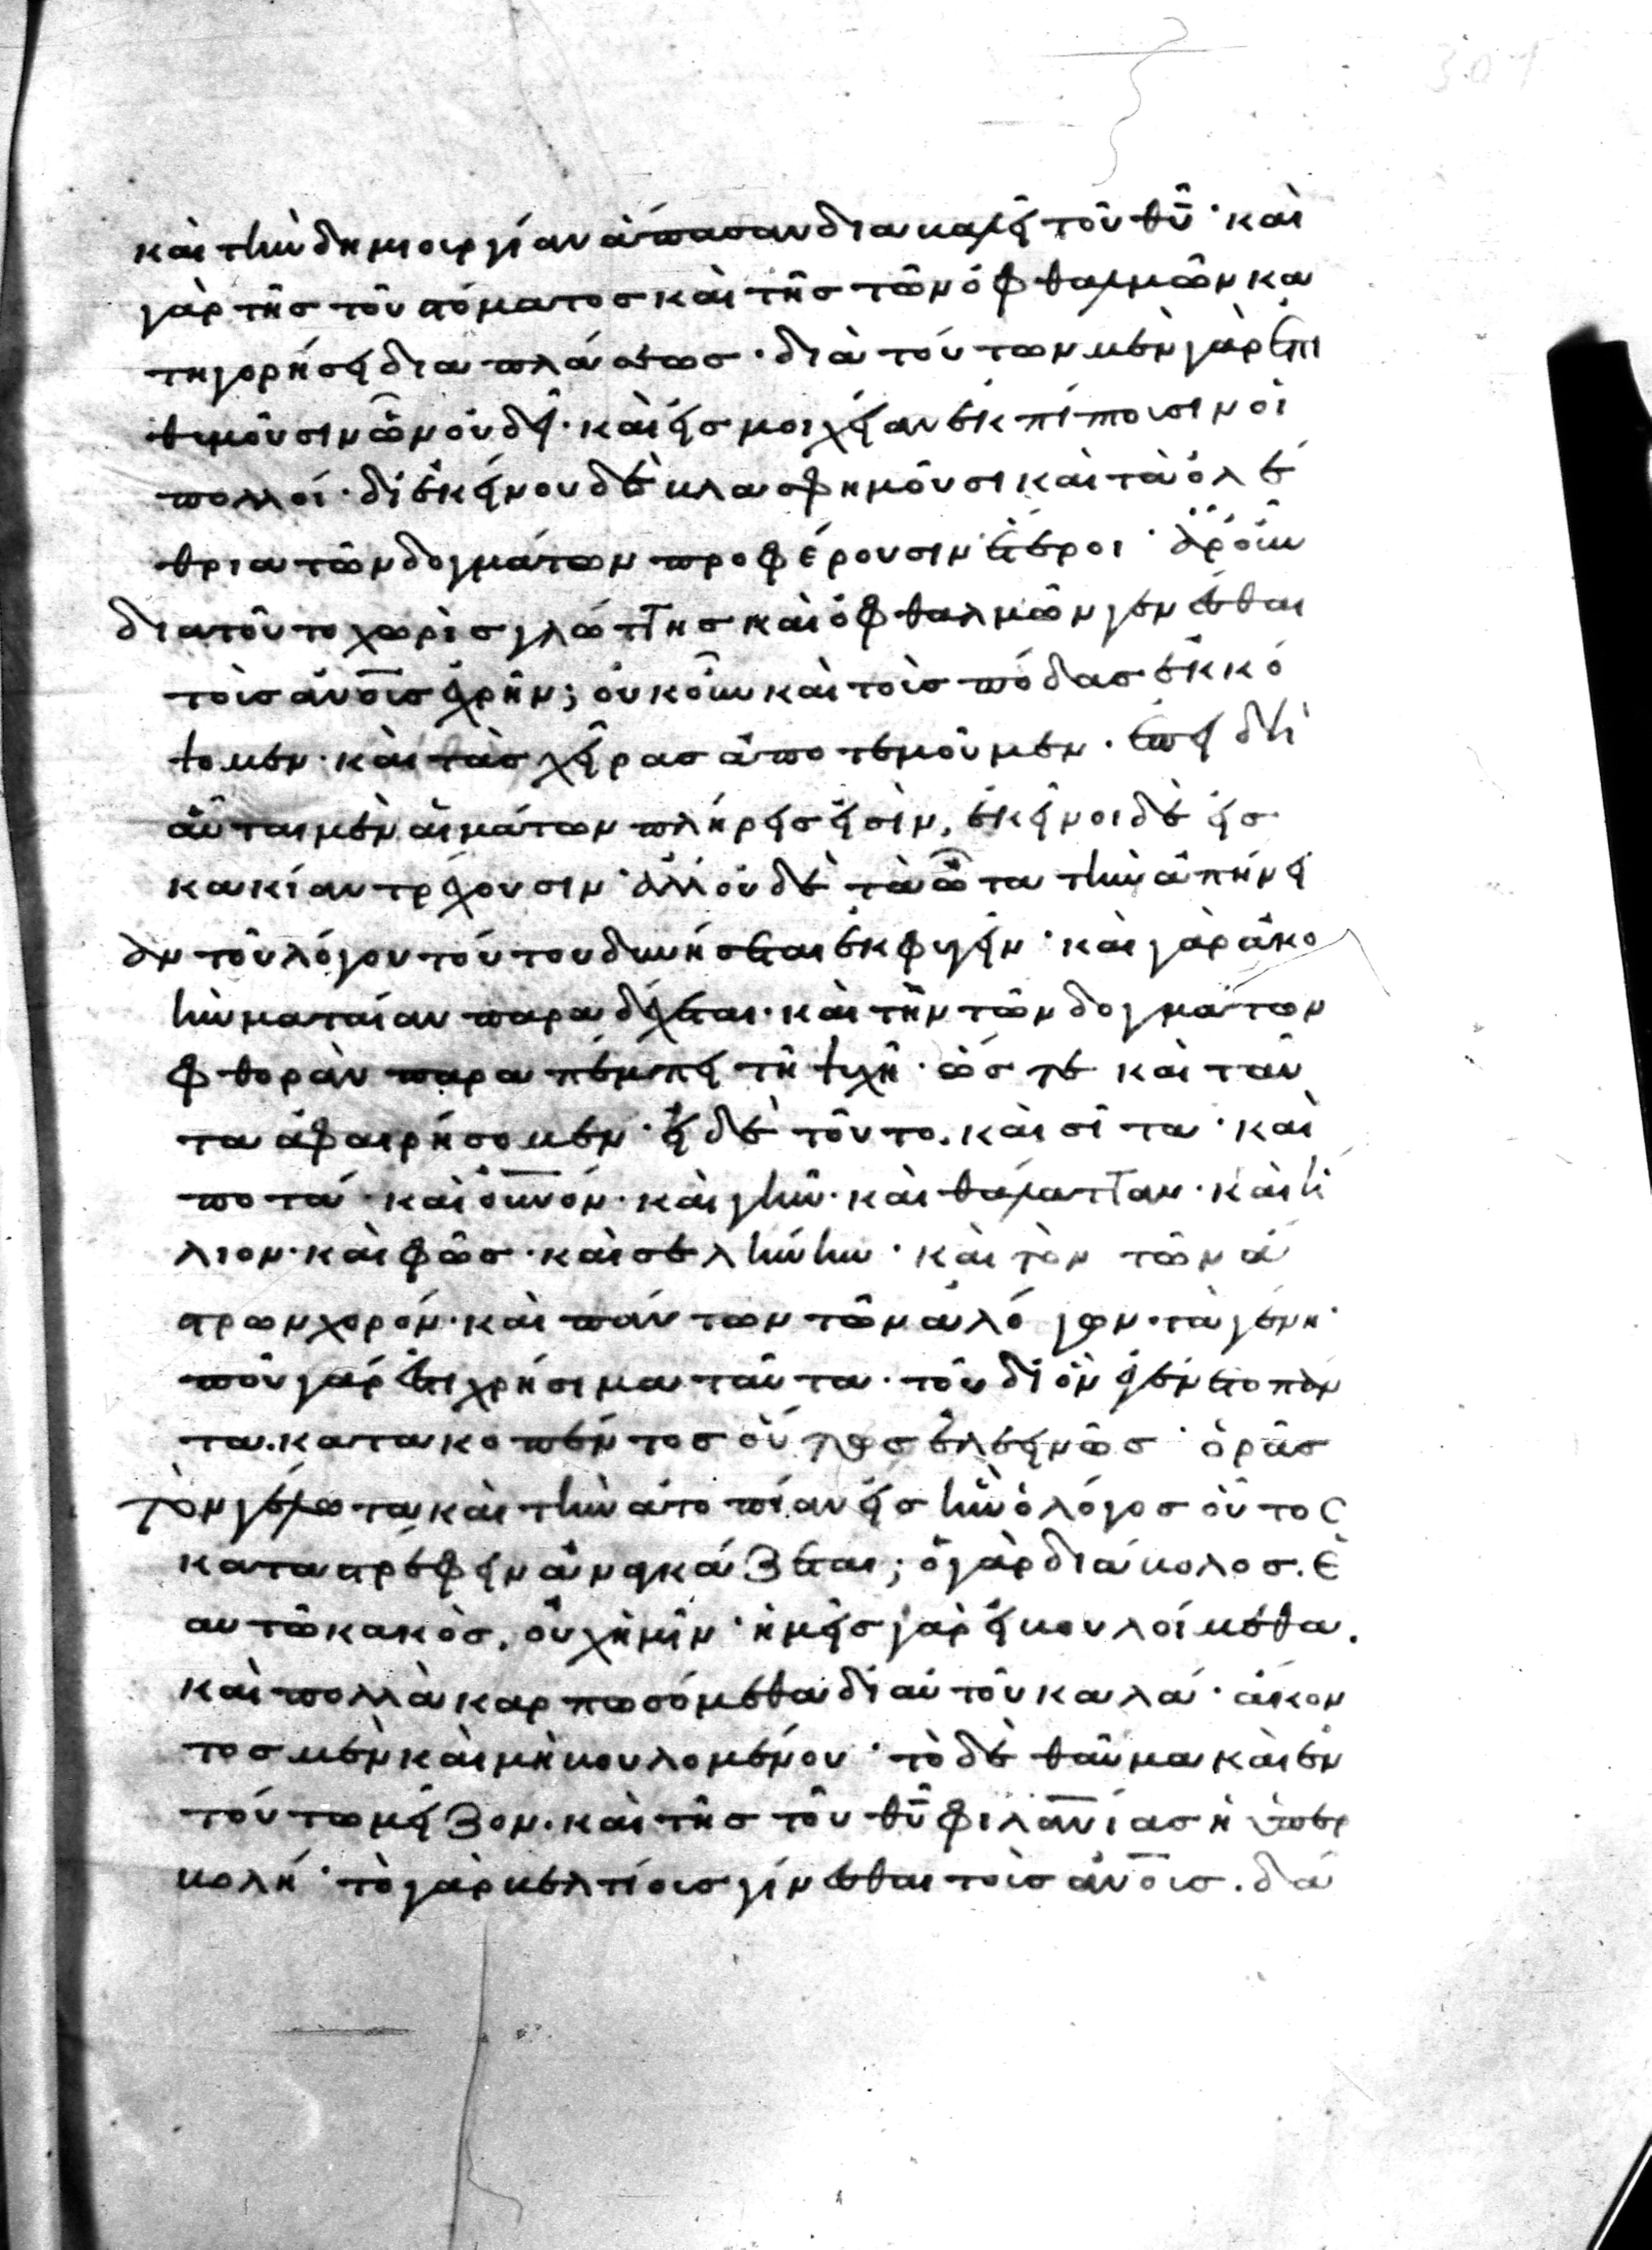 καὶ τὴν δημιουργίαν ἅπασαν διαβαλεῖ τοῦ θῦ· καὶ
γὰρ τῆς τοῦ στόματος καὶ τῆς τῶν ὀφθαλμῶν κα
τηγορήσει διαπλάσεως· διὰ τούτων μὲν γὰρ ἐπι
θυμοῦσιν ὧν οὐ δεῖ· καὶ εἰς μοιχείαν ἐκπίπτουσιν οἱ
πολλοί· δι' ἐκείνου δὲ βλασφημοῦσι καὶ τὰ ὀλέ
θρια τῶν δογμάτων προφέρουσιν ἕτεροι· ἆρ' οὖν
διὰ τοῦτο χωρὶς γλώττης καὶ ὀφθαλμῶν γενέσθαι
τοῖς ἀνοις ἐχρῆν; οὐκοῦν καὶ τοὺς πόδας ἐκκό
ψομεν· καὶ τὰς χεῖρας ἀποτεμοῦμεν· ἐπειδὴ
αὗται μὲν αἱμάτων πλήρεις εἰσὶν, ἐκεῖνοι δὲ εἰς
κακίαν τρέχουσιν· ἀλλ' οὐδὲ τὰ ὦτα τὴν ἀπήνει
αν τοῦ λόγου τούτου δυνήσεται ἐκφυγεῖν· καὶ γὰρ ἀκο
ὴν ματαίαν παραδέχεται· καὶ τὴν τῶν δογμάτων
φθορὰν παραπέμπει τῇ ψυχῇ· ὥστε καὶ ταῦ
τα ἀφαιρήσομεν· εἰ δὲ τοῦτο, καὶ σιτία· καὶ
ποτά· καὶ οὐνόν· καὶ γῆν· καὶ θάλατταν· καὶ ἥ
λιον· καὶ φῶς· καὶ σελήνην· καὶ τὸν τῶν ἄ
στρων χορόν· καὶ πάντων τῶν ἀλόγων· τὰ γένη·
ποῦ γὰρ ἔτι χρήσιμα ταῦτα· τοῦ δι' ὃν ἐγένετο πάν
τα· κατακοπέντος οὕτως ἐλεεινῶς· ὁρᾷς
τὸν γέλωτα καὶ τὴν ἀτοπίαν εἰς ἣν ὁ λόγος οὗτος
καταστρέφειν ἀναγκάζεται; ὁ γὰρ διάβολος· ἑ
αυτῷ κακὸς, οὐχ ἡμῖν· ἡμεῖς γὰρ εἰ βουλοίμεθα,
καὶ πολλὰ καρπωσόμεθα δι' αὐτοῦ καλά· ἄκον
τος μὲν καὶ μὴ βουλομένου· τὸ δὲ θαῦμα καὶ ἐν
τούτω μεῖζον· καὶ τῆς τοῦ θῦ φιλανιας ἡ ὑπερ
βολή· τὸ γὰρ βελτίους γίνεσθαι τοὺς ἀνους· δά